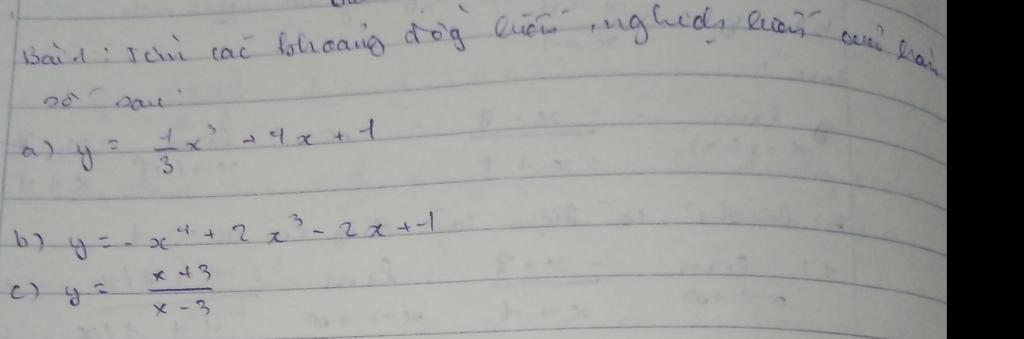 Bài 1: Tìm các khoảng đồg biến, nghịch biến của hàm
số sau:
a) y = \frac{1}{3}x³ - 4x + 1
b) y = -x⁴ + 2x³ - 2x + -1
c) y = \frac{x+3}{x-3}